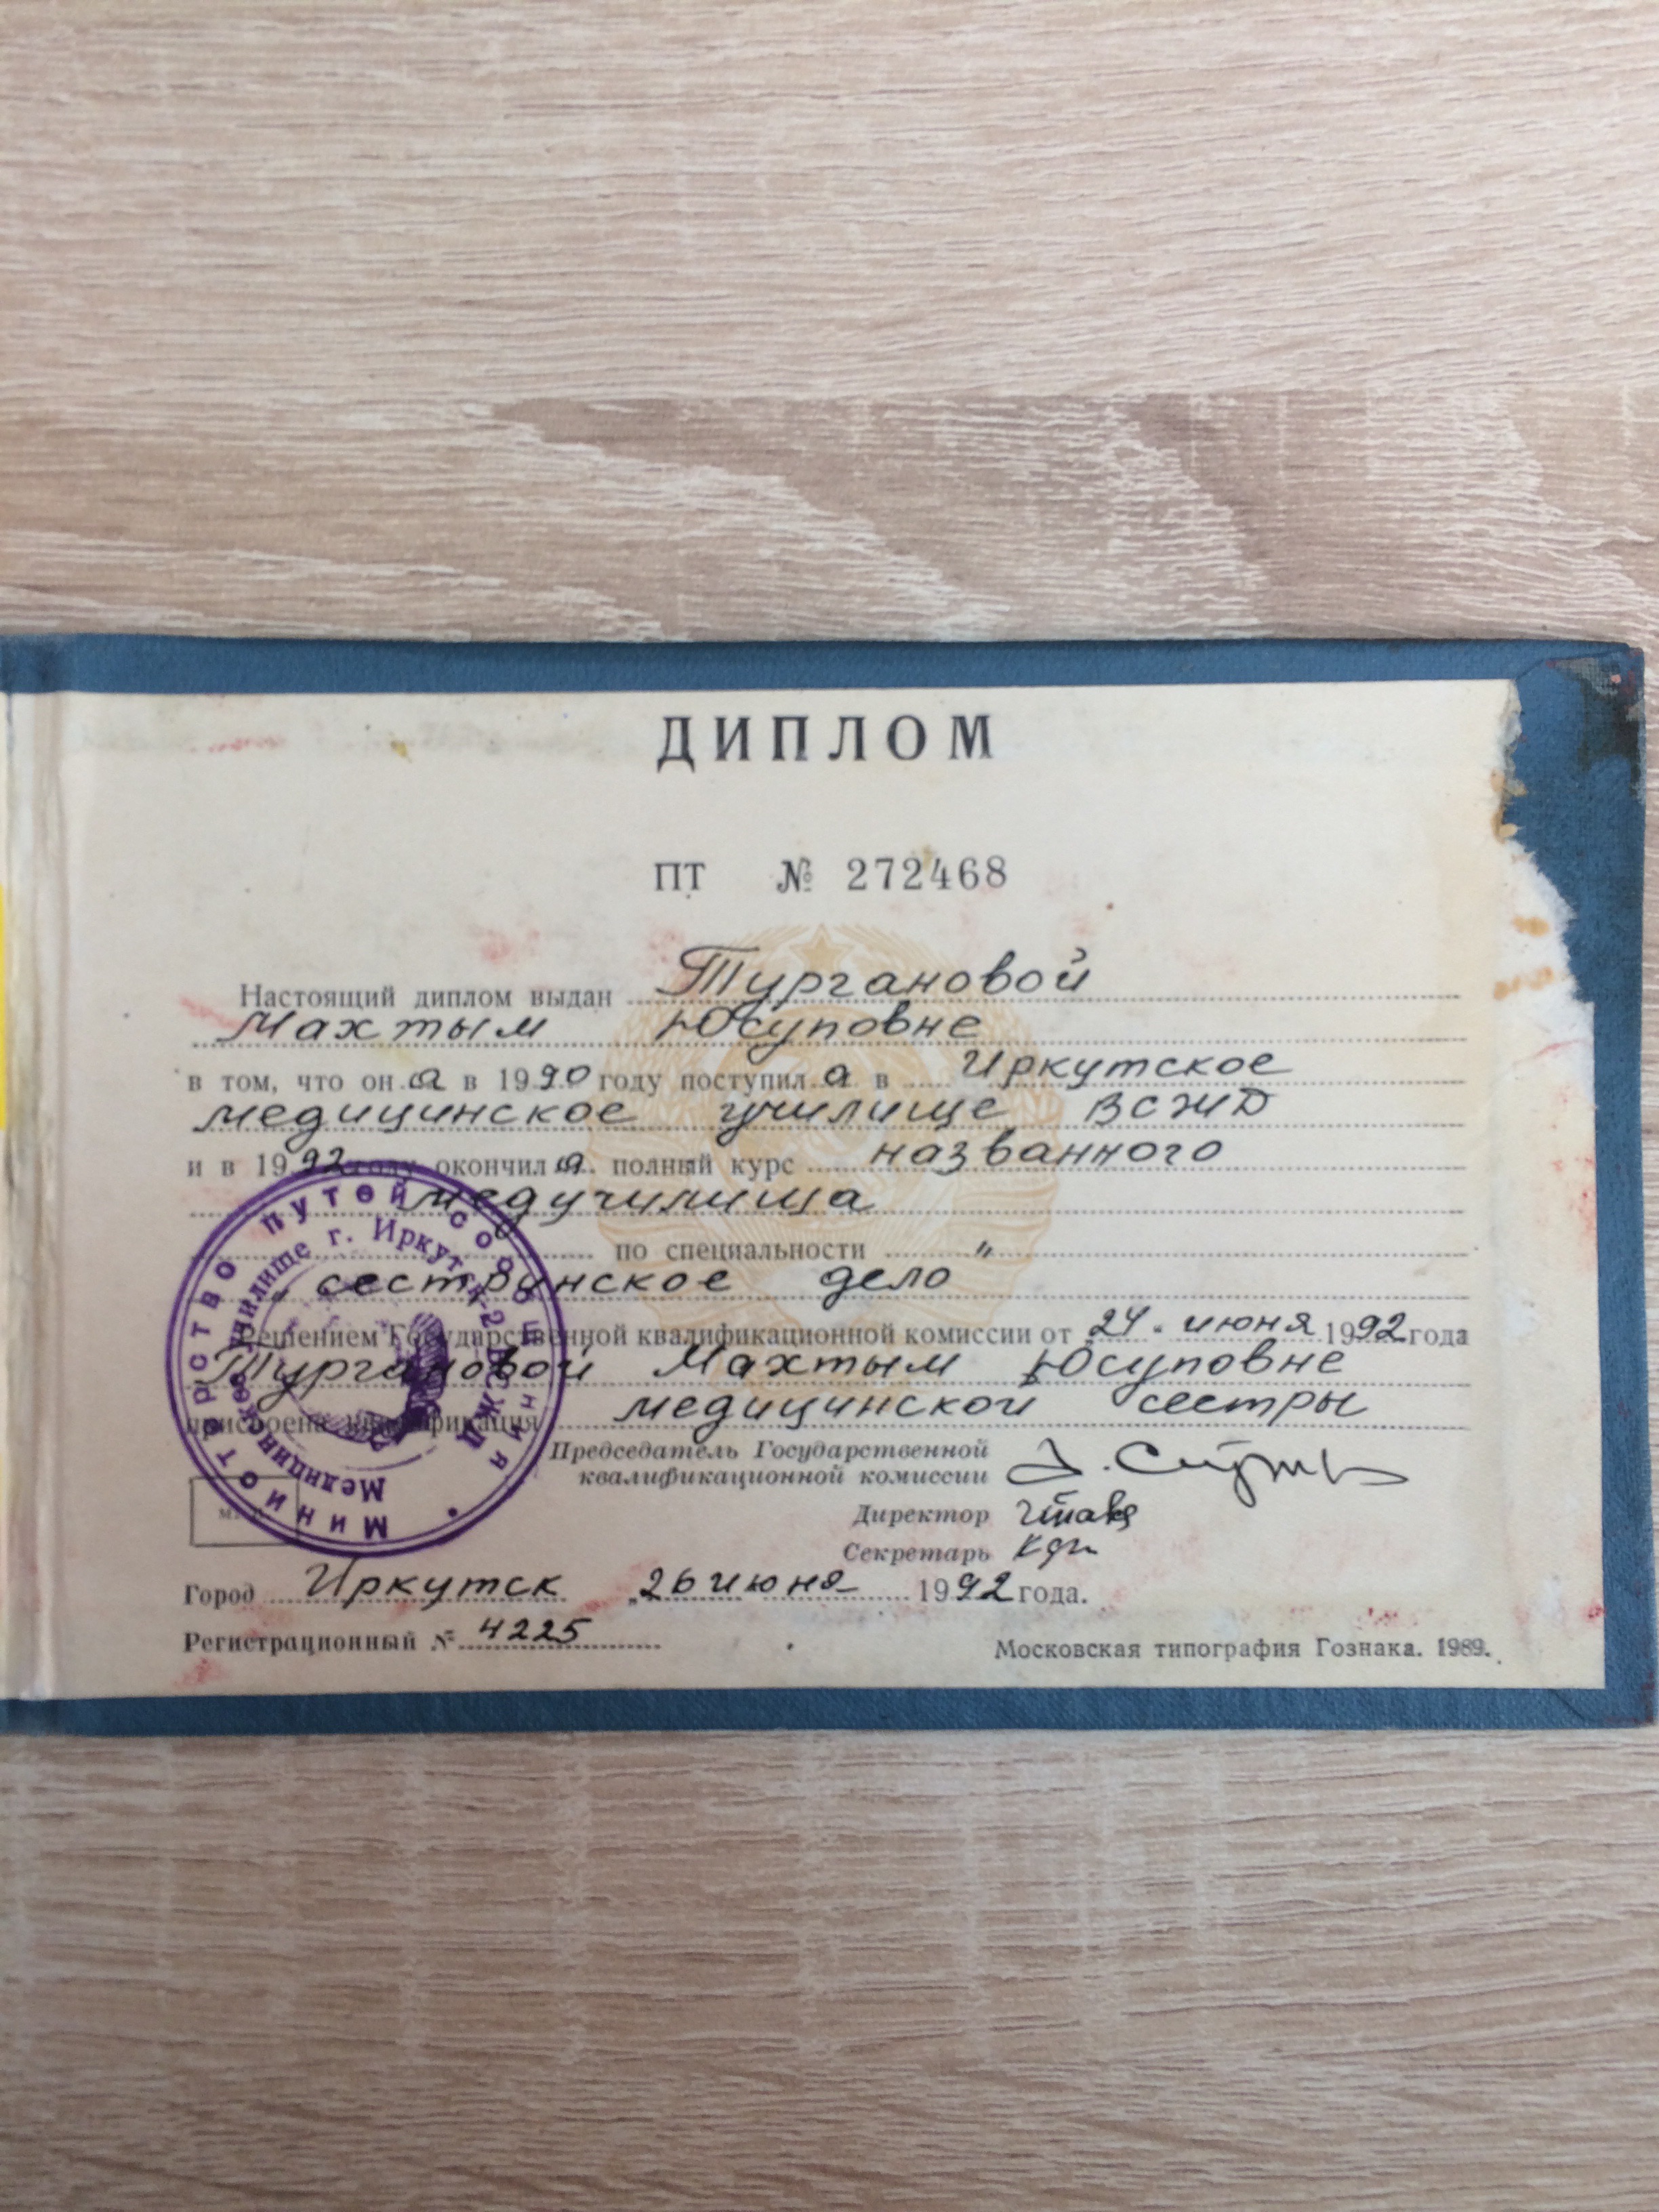 ДИПЛОМ
ПТ № 272468
Настоящий диплом выдан Тургановой
Махтым Юсуповне
в том, что она в 1990 году поступила в Иркутское
медицинское училище ВСЖД
и в 1992 году окончила полный курс названного
медучилища
по специальности "
" сестринское дело
Решением Государственной квалификационной комиссии от 24 июня 1992 года
Тургановой Махтым Юсуповне
присвоена квалификация медицинской сестры
Председатель Государственной
квалификационной комиссии
Директор
Секретарь
Город Иркутск „26 июня 1992 года.
Регистрационный № 4225
Московская типография Гознака. 1989.
Министерство путей сообщения
Медицинское училище г. Иркутск-2 ВСЖД